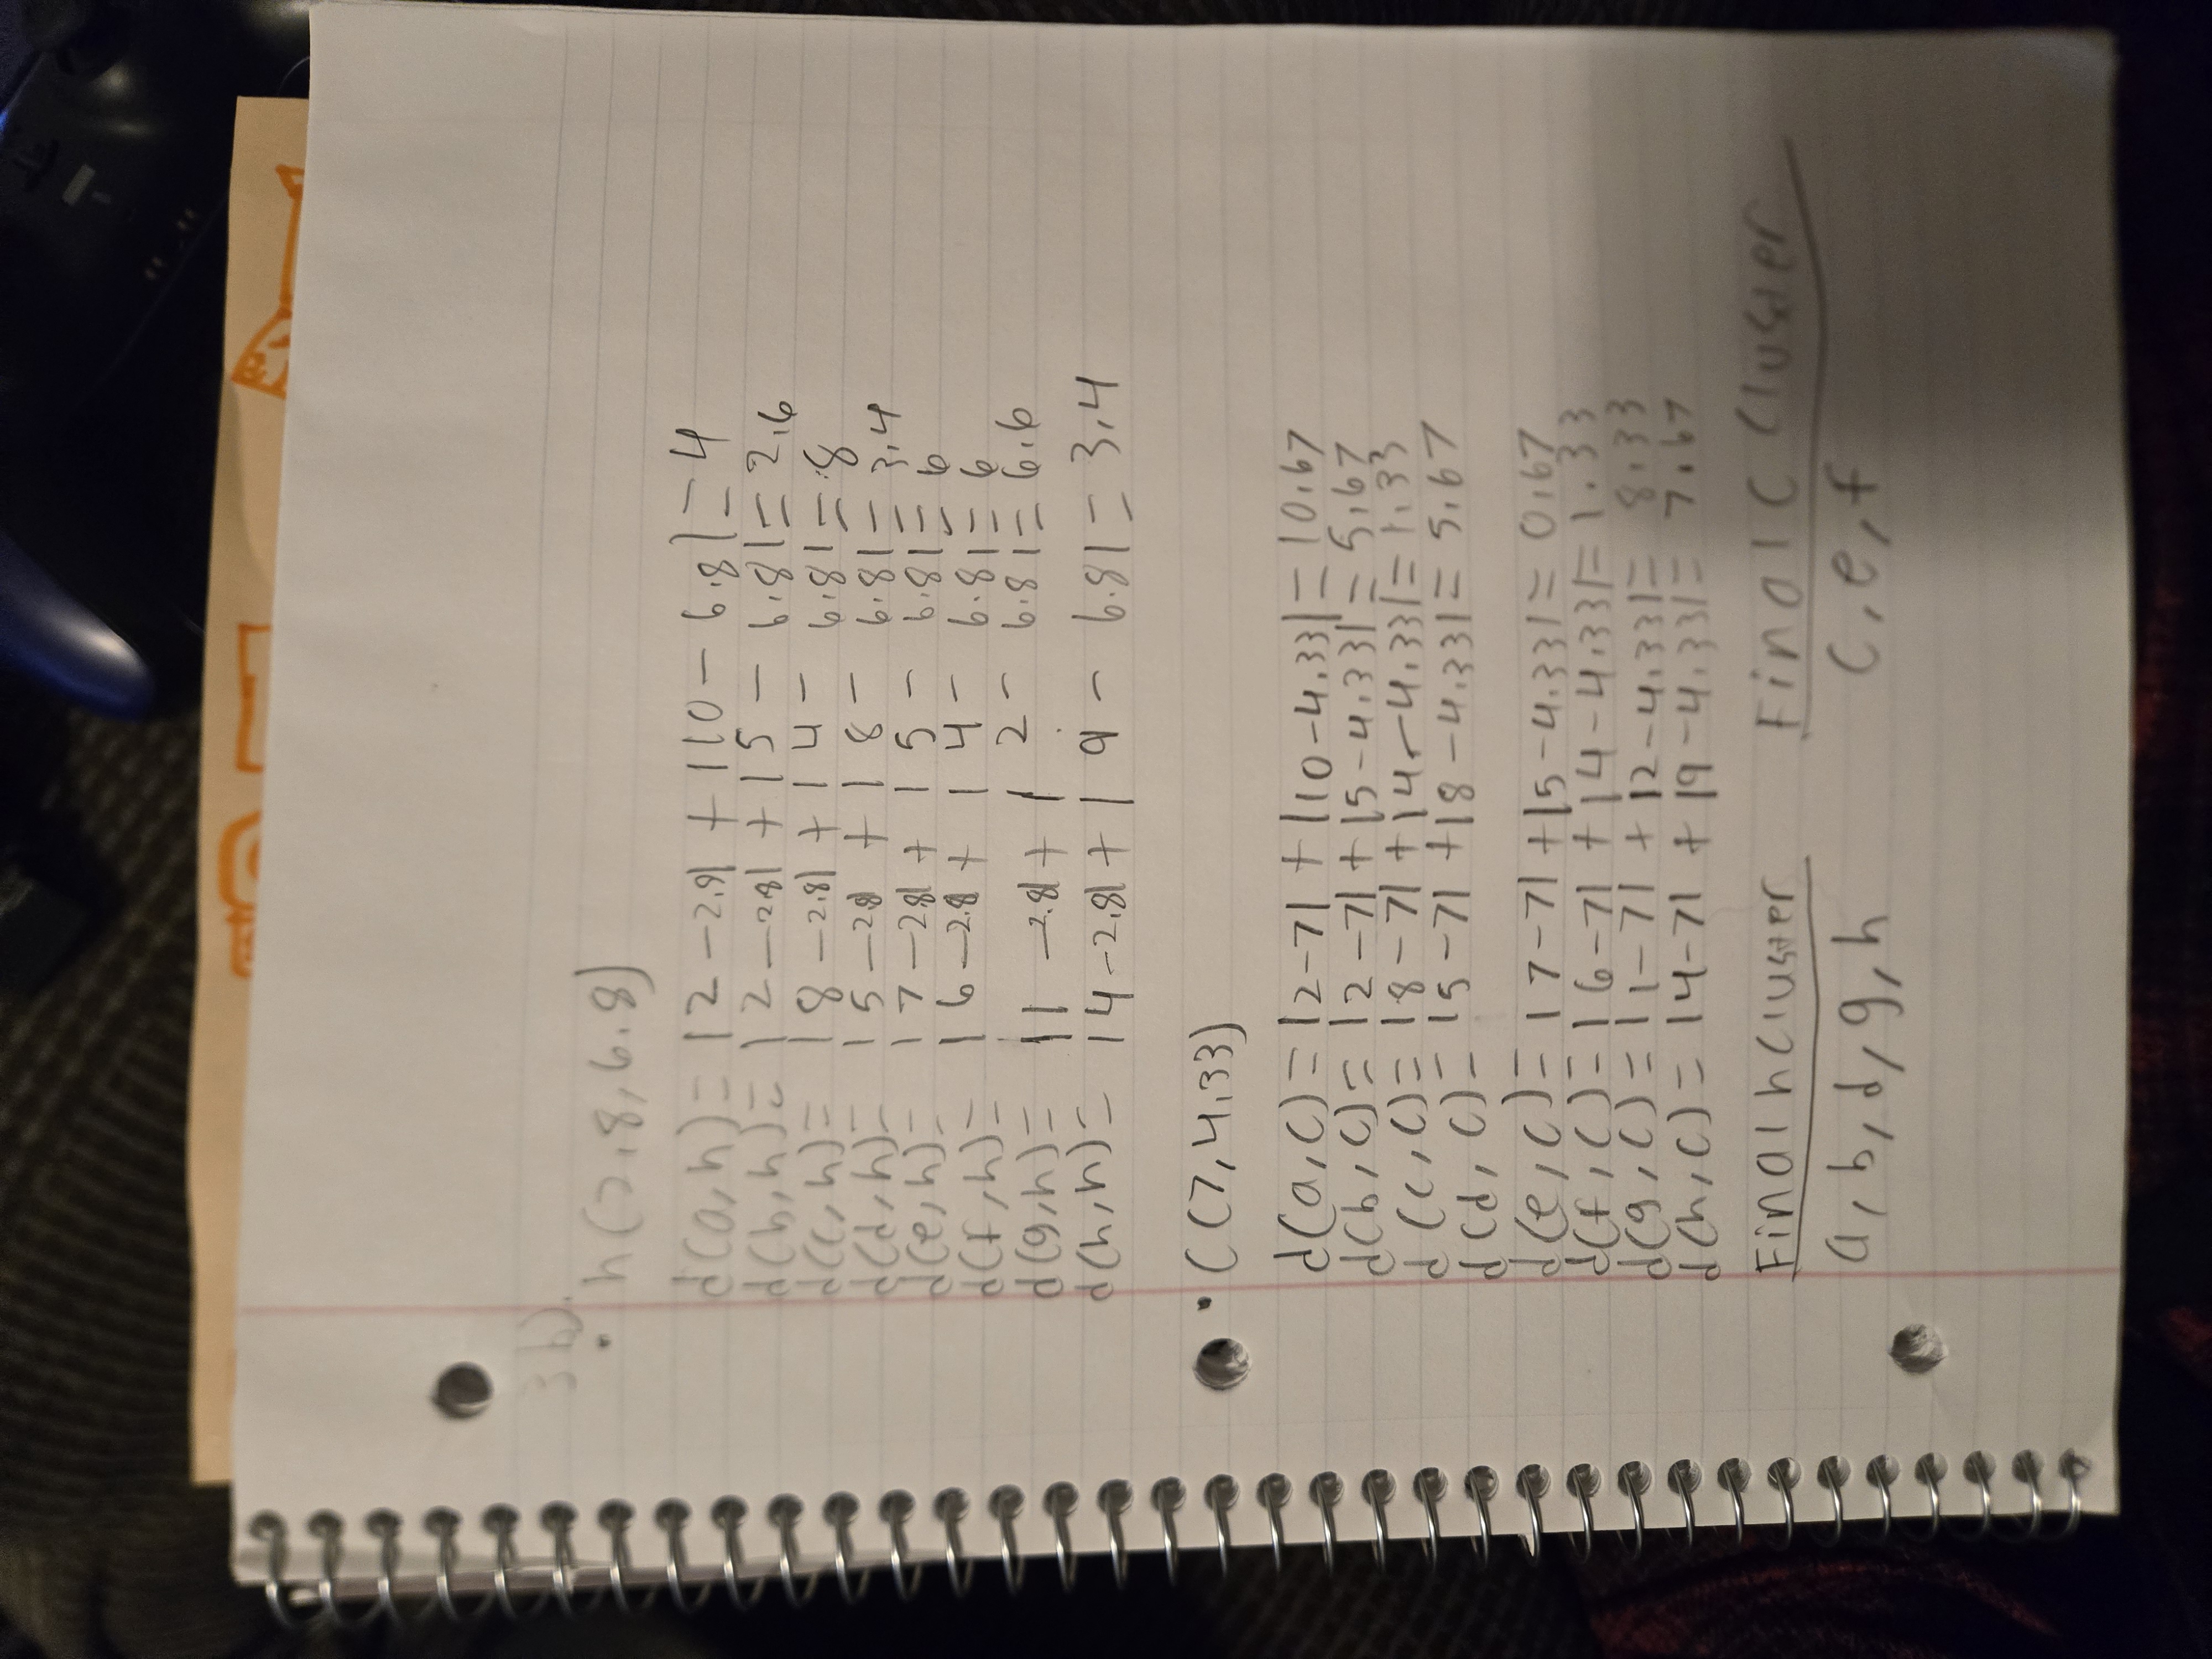 3b).
• h(2.8, 6.8)
d(a,h) = |2 - 2.8| + |10 - 6.8| = 4
d(b,h) = |2 - 2.8| + |5 - 6.8| = 2.6
d(c,h) = |8 - 2.8| + |4 - 6.8| = 8
d(d,h) = |5 - 2.8| + |8 - 6.8| = 3.4
d(e,h) = |7 - 2.8| + |5 - 6.8| = 6
d(f,h) = |6 - 2.8| + |4 - 6.8| = 6
d(g,h) = |1 - 2.8| + |2 - 6.8| = 6.6
d(h,h) = |4 - 2.8| + |9 - 6.8| = 3.4
• C(7, 4.33)
d(a,C) = |2-7| + |10-4.33| = 10.67
d(b,C) = |2-7| + |5-4.33| = 5.67
d(c,C) = |8-7| + |4-4.33| = 1.33
d(d,C) = |5-7| + |8-4.33| = 5.67
d(e,C) = |7-7| + |5-4.33| = 0.67
d(f,C) = |6-7| + |4-4.33| = 1.33
d(g,C) = |1-7| + |2-4.33| = 8.33
d(h,C) = |4-7| + |9-4.33| = 7.67
Final h Cluster Final C Cluster
a, b, d, g, h C, e, f